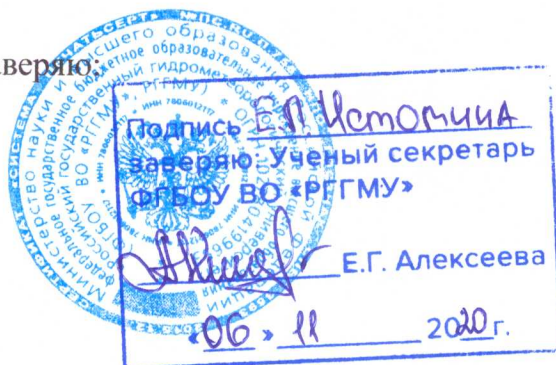 аверяю:
Подпись Е.П. Истомина
заверяю: Ученый секретарь
ФГБОУ ВО «РГГМУ»
Е.Г. Алексеева
«06» 11 2020 г.
Министерство науки и высшего образования
федеральное государственное бюджетное образовательное
Российский государственный гидрометеорол
ФГБОУ ВО «РГГМУ», РГГМУ)